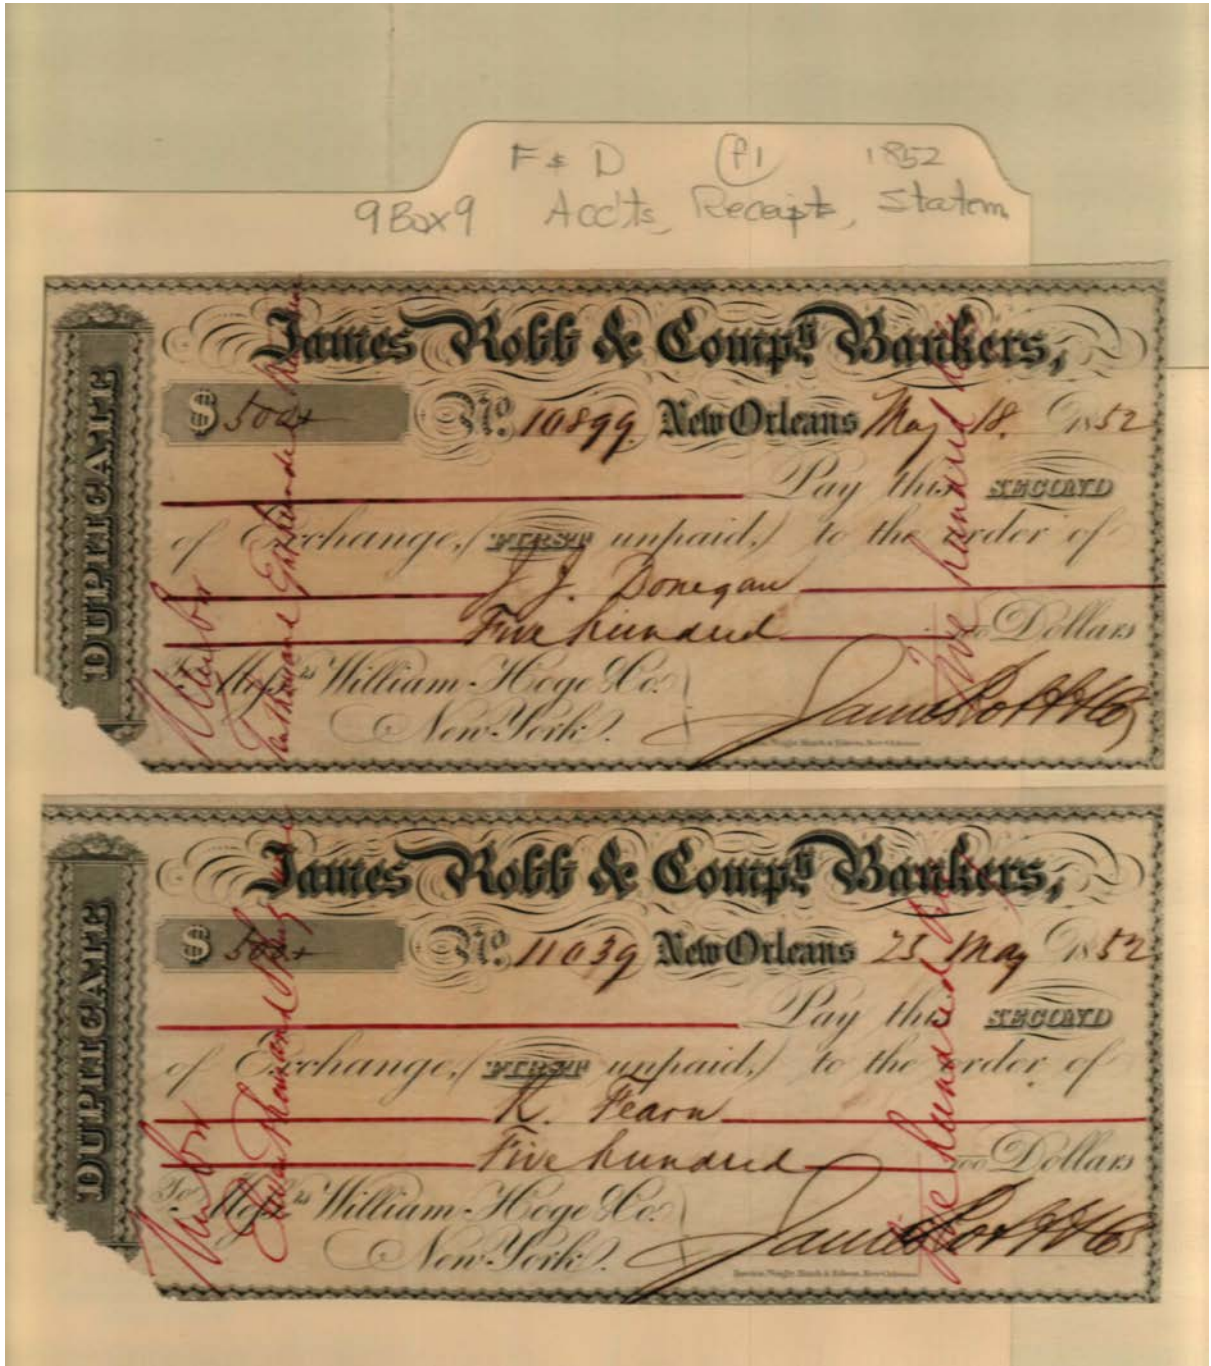 F & D P1 1852
9 Box 9 Acc'ts, Receipts, Statem
DUPLICATE
James Robb & Compy. Bankers,
$500 No. 10899. New Orleans May 18. 1852
Pay this SECOND
of Exchange, (FIRST unpaid,) to the order of
J. J. Donegan
Five hundred 100 Dollars
To Mess.rs William Hoge & Co.
New York.
James Robb & Co
Number
Ten thousand Eight hundred
Five hundred
DUPLICATE
James Robb & Compy. Bankers,
$500 No. 11039 New Orleans 25 May 1852
Pay this SECOND
of Exchange, (FIRST unpaid,) to the order of
R. Fearn
Five hundred 100 Dollars
To Mess.rs William Hoge & Co.
New York.
James Robb & Co
Number
Eleven Thousand Thirty nine
Five hundred